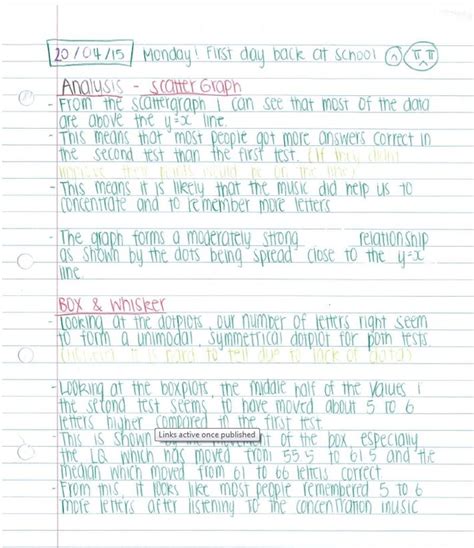 20/04/15 Monday! First day back at school
Analysis - scatter Graph
- From the scattergraph I can see that most of the data
are above the y=x line.
- This means that most people got more answers correct in
the second test than the first test. (If they didn't
improve their points would be on the line)
- This means it is likely that the music did help us to
concentrate and to remember more letters
- The graph forms a moderately strong relationship
as shown by the dots being spread close to the y=x
line.
BOX & Whisker
- Looking at the dotplots, our number of letters right seem
to form a unimodal, symmetrical dotplot for both tests
(however it is hard to tell due to lack of data)
- Looking at the boxplots, the middle half of the values i
the second test seems to have moved about 5 to 6
letters higher compared to the first test.
- This is shown of the box, especially
Links active once published
the LQ which has moved from 55.5 to 61.5 and the
median which moved from 61 to 66 letters correct
- From this, it looks like most people remembered 5 to 6
more letters after listening to the concentration music